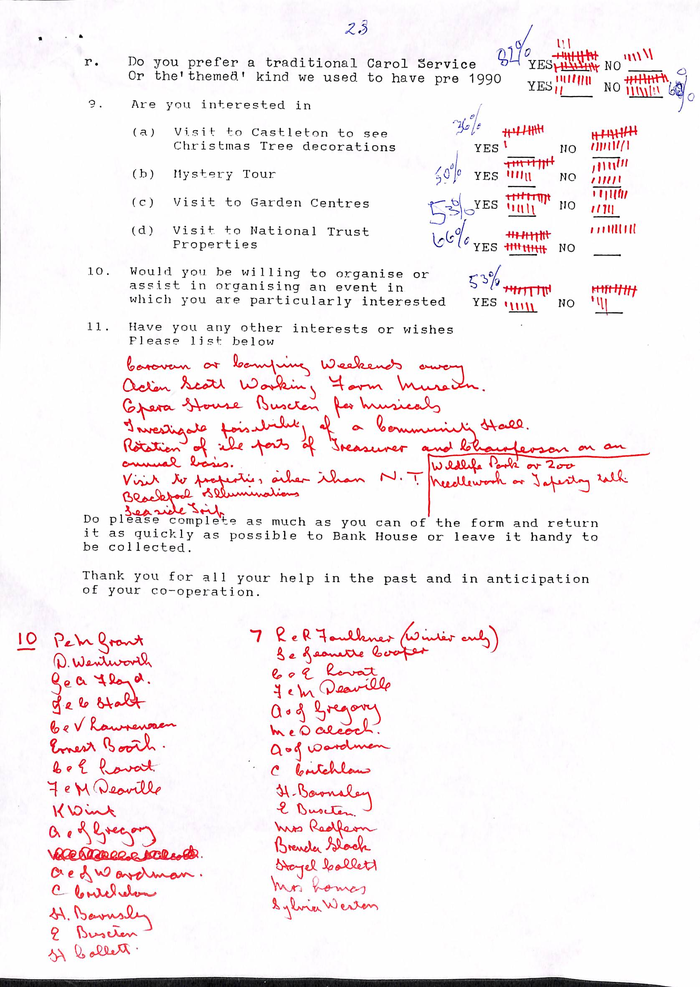 23
r. Do you prefer a traditional Carol Service 82% YES NO
Or the 'themed' kind we used to have pre 1990 YES NO
9. Are you interested in
(a) Visit to Castleton to see 36%
Christmas Tree decorations YES NO
(b) Mystery Tour 50% YES NO
(c) Visit to Garden Centres 53% YES NO
(d) Visit to National Trust 66%
Properties YES NO
10. Would you be willing to organise or 53%
assist in organising an event in
which you are particularly interested YES NO
11. Have you any other interests or wishes
Please list below
Caravan or Camping Weekends away
Acton Scott Working Farm Museum.
Opera House Buxton for Musicals
Investigate possibility of a Community Hall.
Rotation of the posts of Treasurer and Chairperson on an
annual basis.
Wildlife Park or Zoo
Visit to properties other than N.T
Needlework or Tapestry talk
Blackpool Illuminations
Seaside Trip
Do please complete as much as you can of the form and return
it as quickly as possible to Bank House or leave it handy to
be collected.
Thank you for all your help in the past and in anticipation
of your co-operation.
10 P & M Grant
D. Wentworth
G & A Floyd.
J & C Statt
C & V Lawrenson
Ernest Booth.
C & E Lovat
F & M Deaville
K Wint
A & J Gregory
A & J Wardman.
C Critchlow
H. Barnsley
E Buxton
H Collett.
7 R & R Faulkner (Winter only)
S & Jeanette Cooper
C & E Lovat
F & M Deaville
A & J Gregory
M & D Alcock.
A & J Wardman
C Critchlow
H. Barnsley
E Buxton.
Mrs Redfern
Brenda Slack
Hazel Collett
Mrs Lomas
Sylvia Weston